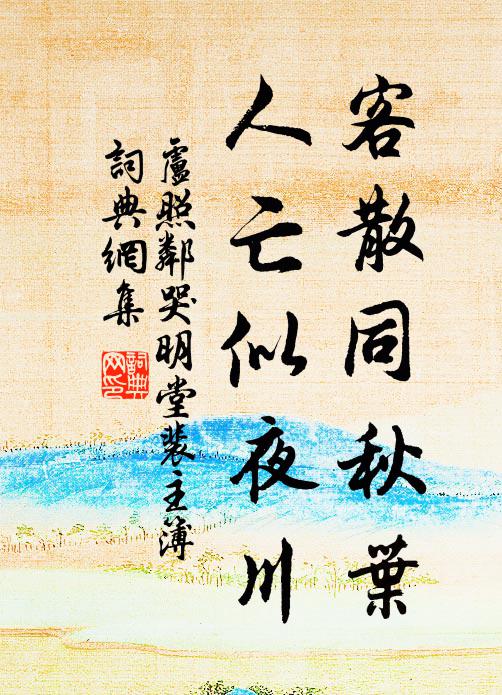 客散同秋葉
人亡似夜川
盧照鄰哭明堂裴主簿
詞典網集
詞典
网印